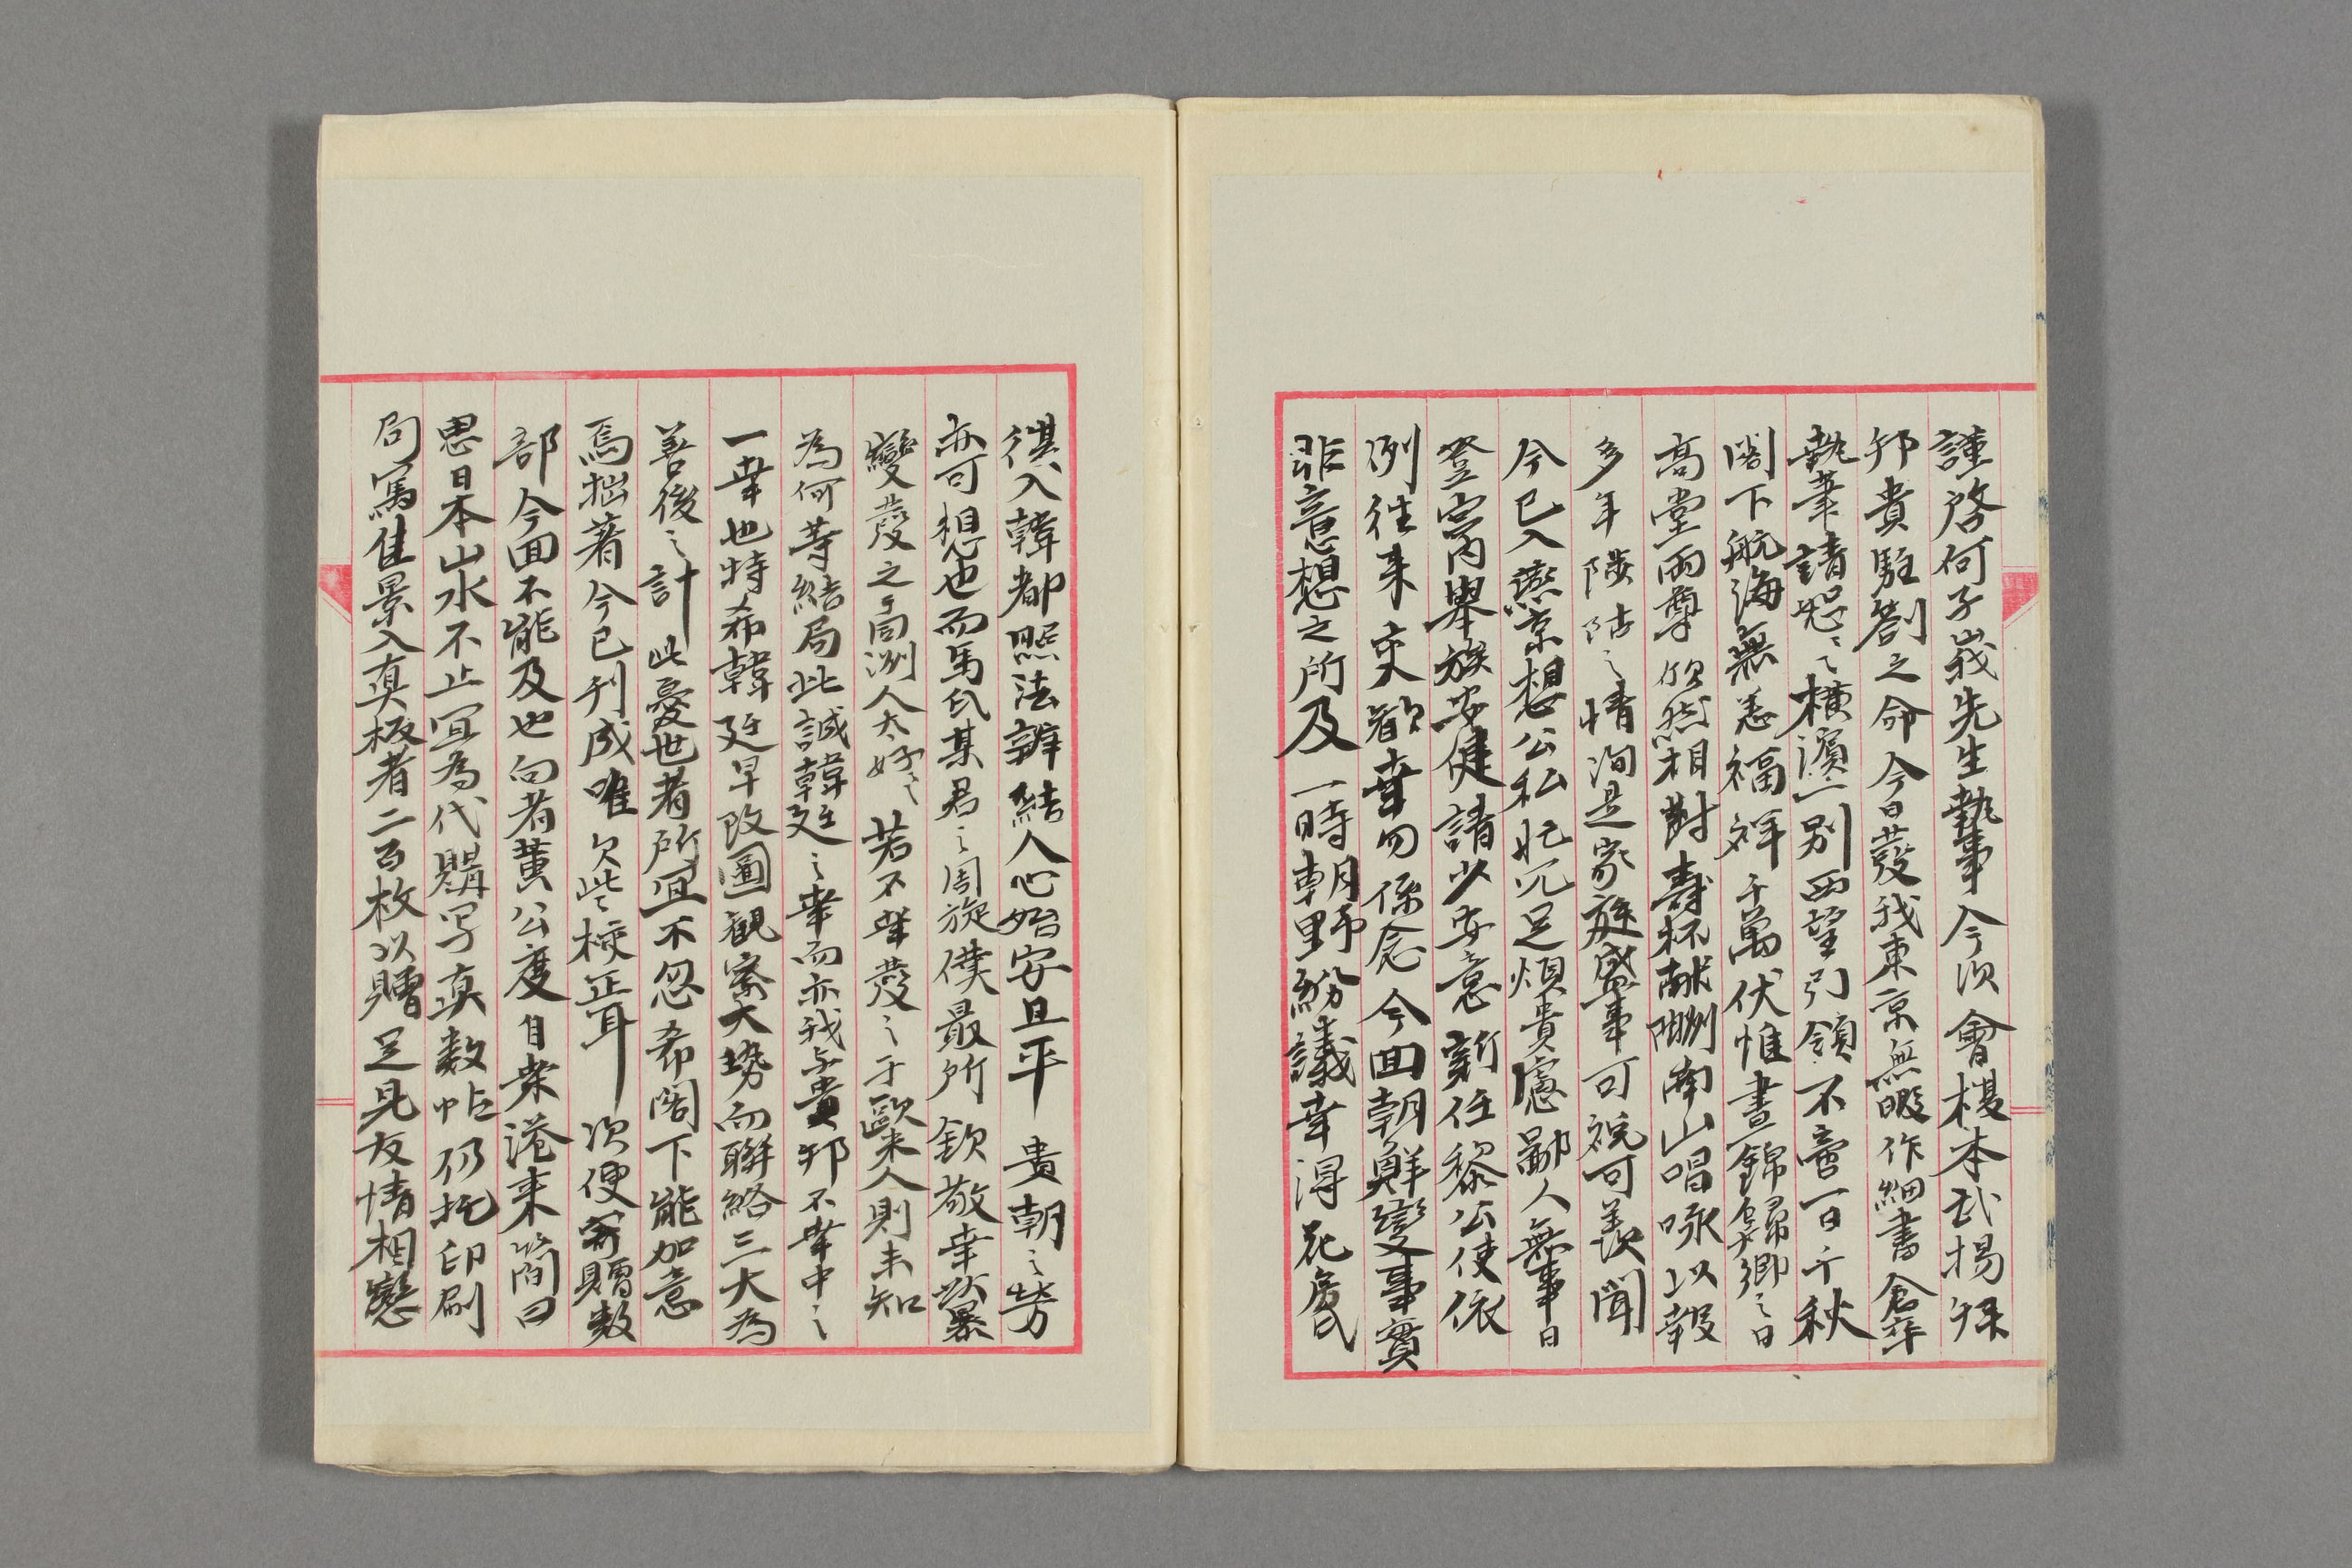 謹啓何子峩先生執事今次會榎本武揚奉
邦貴駐劄之命今日發我東京無暇作細書倉卒
執筆請恕〻橫濱一別西望引領不啻一日千秋
閣下航海無恙福祥千萬伏惟晝錦歸鄉之日
高堂兩尊欣然相對壽杯献酬南山唱咏以報
多年陟岵之情洵是家庭盛事可祝可羨聞
今已入燕京想公私忙冗足煩貴慮鄙人無事日
登宮內舉族安健請少安意新任黎公使依
例往来交歡幸勿係念今回朝鮮變事實
非意想之所及一時朝野紛議幸得花房氏
入韓都照法辦結人心始安且平貴朝之勞
亦可想也而馬氏某君之周旋僕最所欽敬幸
變發之亞洲人太好〻若不幸發之于歐米人則未知
為何等結局此誠韓廷之幸而亦我与貴邦不幸中之
一幸也特希韓廷早改圖觀察大勢而聯絡三大為
善後之計此憂世者所宜不忽希閣下能加意
焉拙著今已刊成唯欠些校正耳次便寄贈数
部今回不能及也向者黃公度自桑港来簡曰
思日本山水不止宜為代購写真数帖仍托印刷
局寫佳景入真板者二百枚以贈足見友情相戀